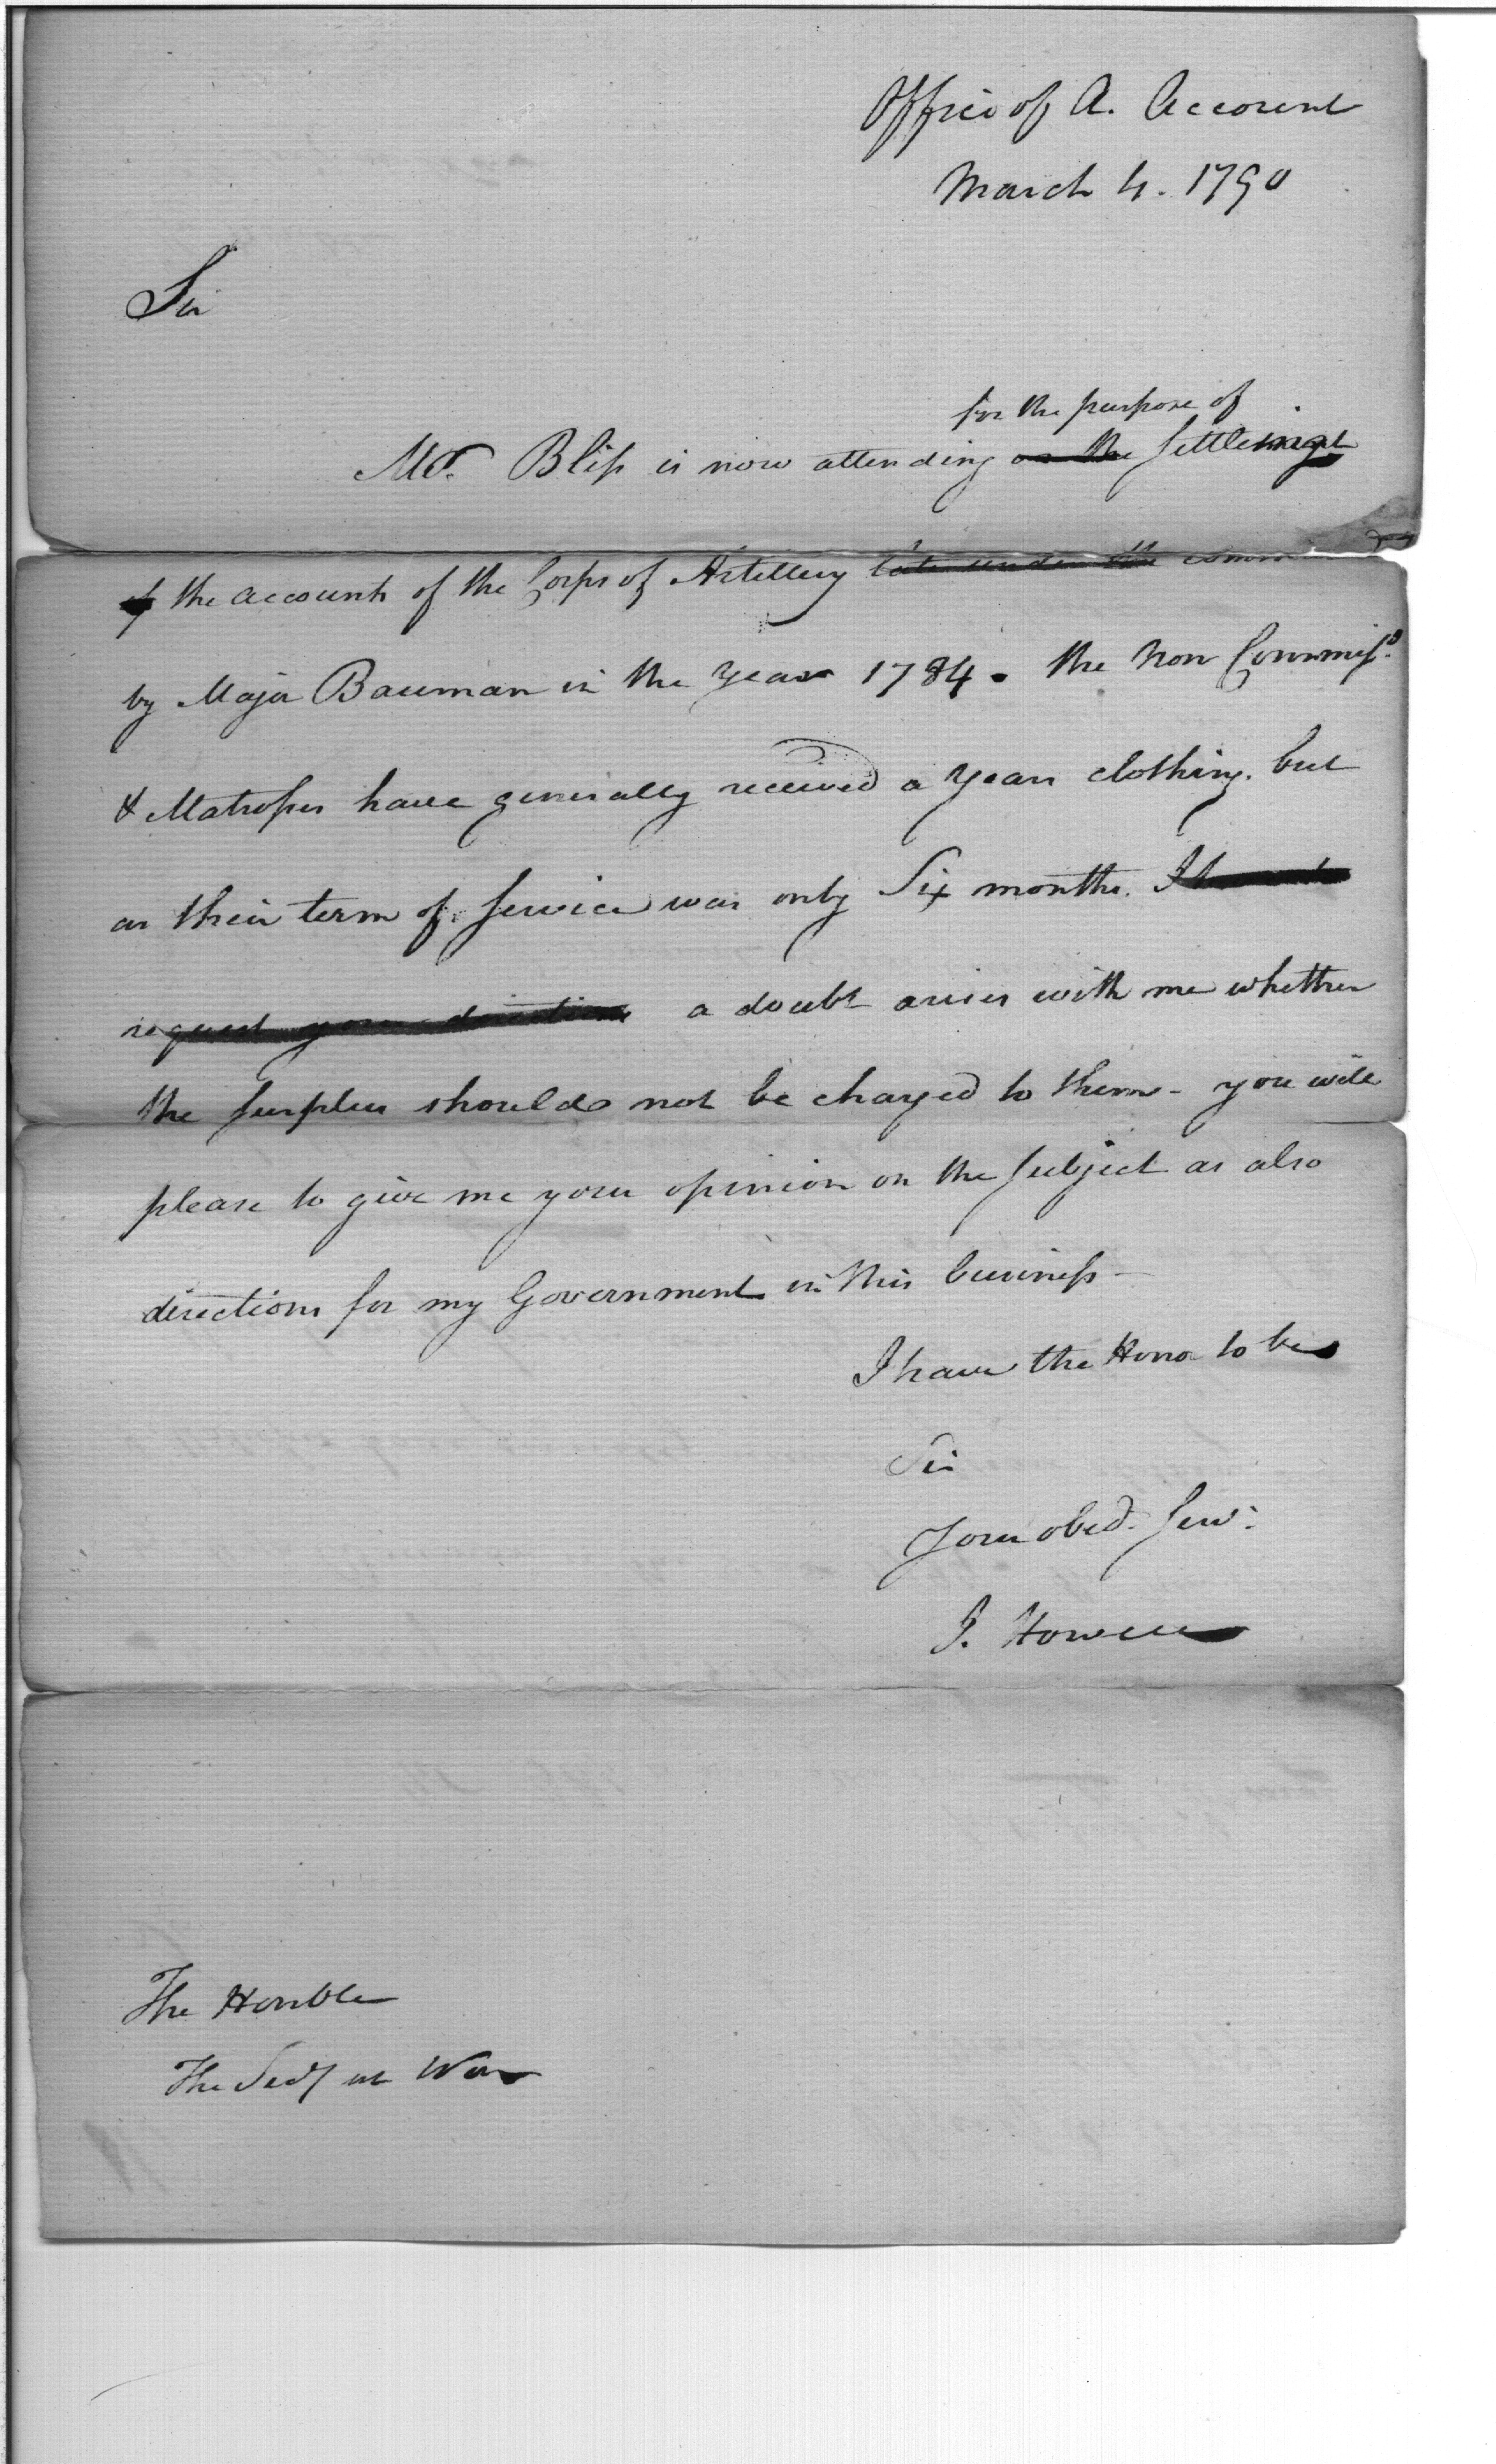 Office of A. Account
March 4. 1790
Sir
for the purpose of
Mr. Bliss is now attending on the Settling
of the accounts of the Corps of Artillery late under the comm
by Major Bauman in the year 1784. the Non Commissd.
& Matrosses have generally received a years clothing. but
as their term of Service was only Six months. I
request your directions a doubt arises with me whether
the surplus should not be charged to them - you will
please to give me your opinion on the subject as also
directions for my Government in this business -
I have the Honor to be
Sir
Your obed. Serv.
J. Howell
The Honble
The Secy at War